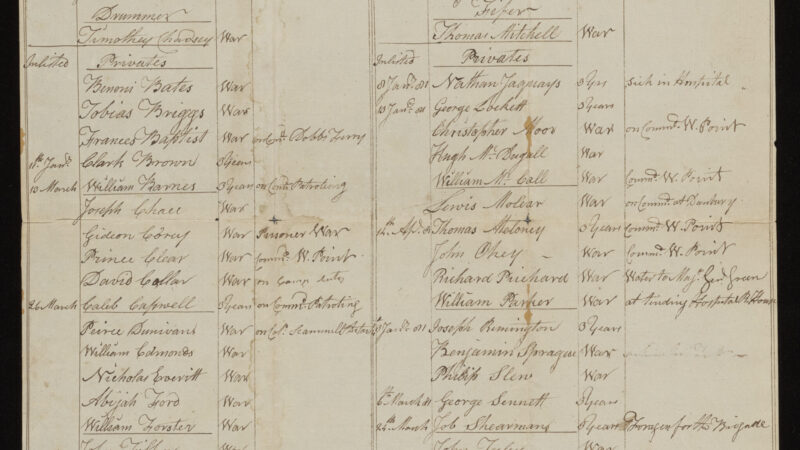 Drummer
Timothey Chadsey War
Inlisted Privates
Benoni Bates War
Tobias Briggs War
Frances Baptist War on Comd Dobbs Ferry
Clark Brown 3 Years
10 March William Barnes 3 Years on Comd Patroling
Joseph Chace War
Gideon Corey War Prisoner War
Prince Clear War Commd W. Point
David Collar War on Camp duty
26 March Caleb Caswell 3 Years on Commd Patroling
Peirce Dunivans War on Col. Scammell
William Edmonds War
Nicholas Everitt War
Abijah Ford War
William Forster War
Fifer
Thomas Mitchell War
Inlisted Privates
8 Jany 81 Nathan Jaquays 3 Yrs Sick in Hospital
George Lockett 3 Years
Christophar Moor War on Commd W. Point
Hugh Mc Dugall War
William Mc Call War Commd W. Point
Lewis Molear War on Commd at Danbury
Thomas Meloney 3 Years Commd W. Point
John Ohey War Commd W. Point
Richard Prichard War Water to Majr Genl Green
William Parker War at tinding Hospital
Joseph Rimington 3 Years
Benjamin Spragese War
Philip Slew War
6th March 81 George Sennett 3 Years
24th March Job Shearmans 3 Years Forager for the Brigade
John War